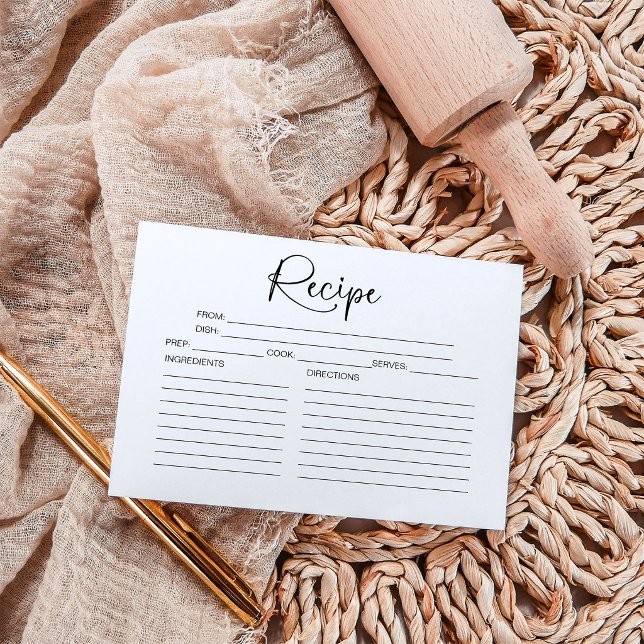 Recipe
FROM:
DISH:
PREP: COOK: SERVES:
INGREDIENTS DIRECTIONS